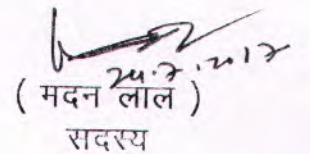 24.7.2017
( मदन लाल )
सदस्य